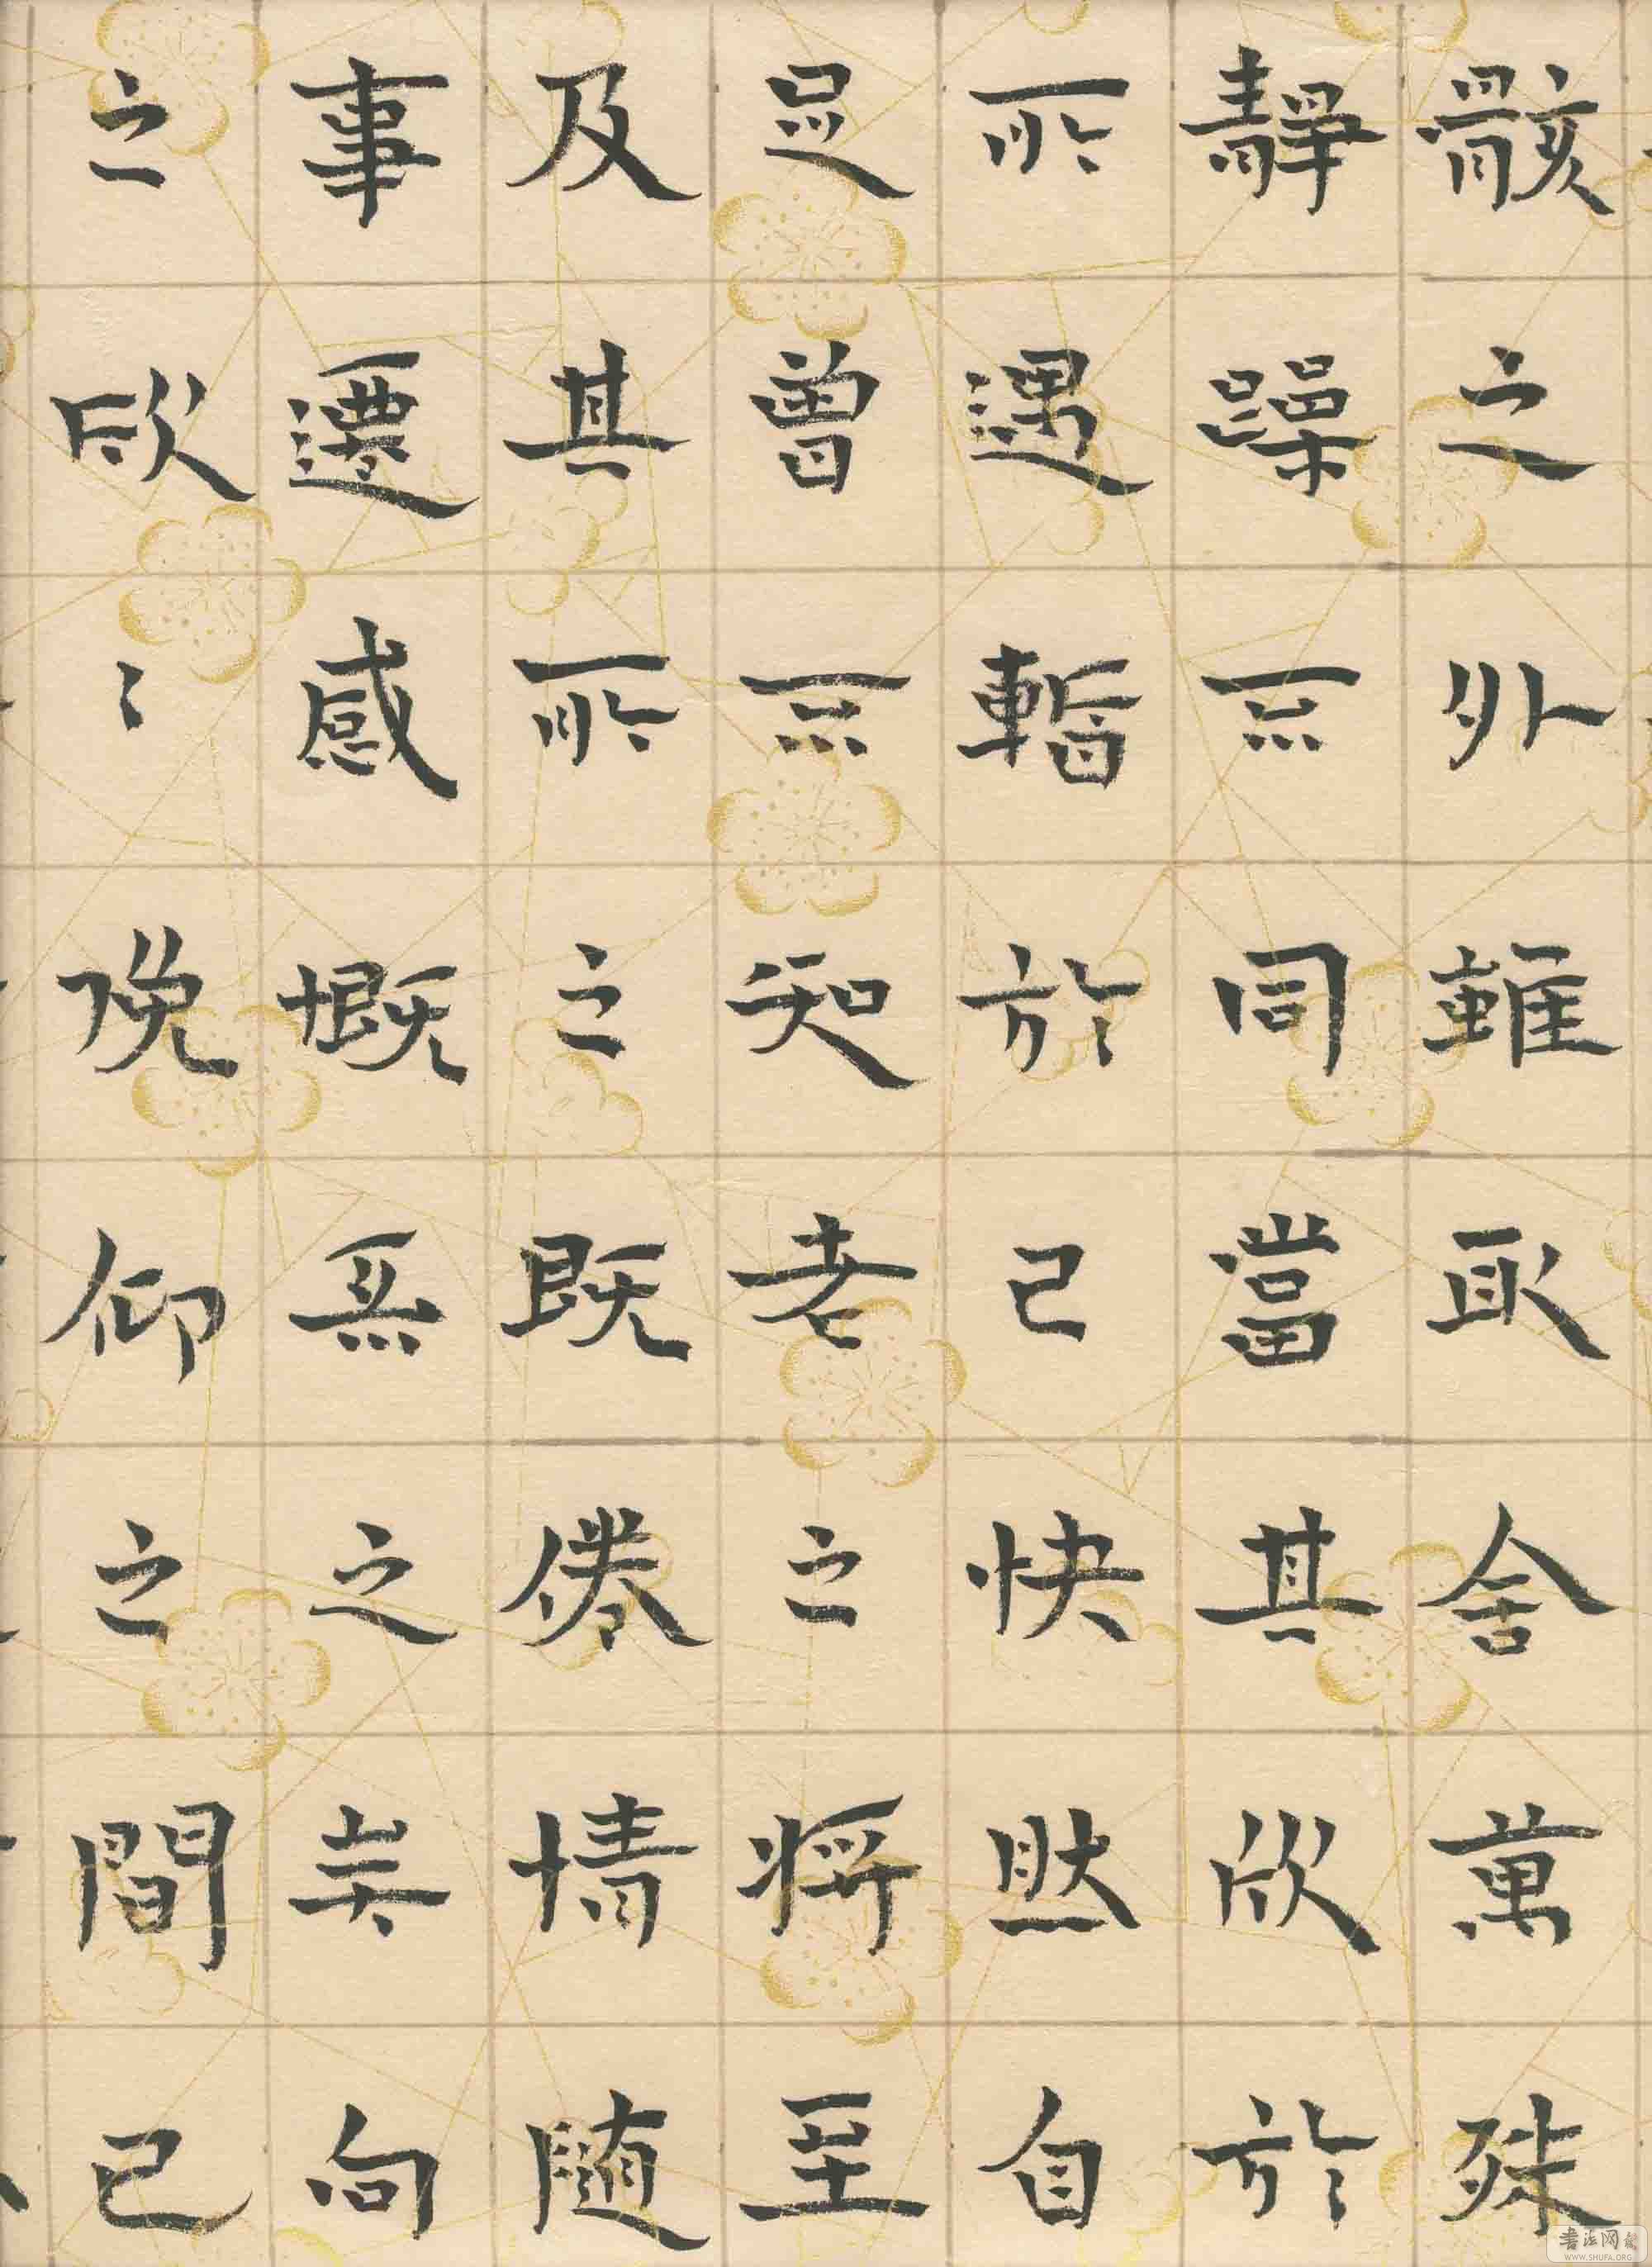 骸之外雖取舍萬殊
靜躁不同當其欣於
所遇暫於己快然自
足曾不知老之將至
及其所之既倦情隨
事遷感慨系之矣向
之欣〻俛仰之間已
WWW.SHUFA.ORG